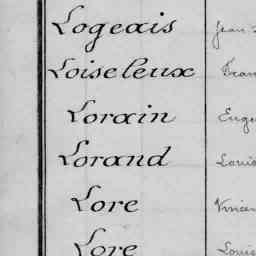 Logeais Jean
Loiseleux Fran
Lorain Eugè
Lorand Louis
Lore Vincen
Lore Louis